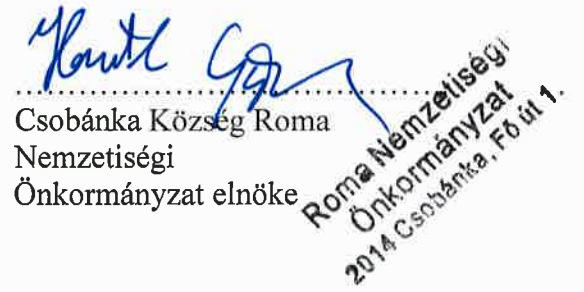 Csobánka Község Roma
Nemzetiségi
Önkormányzat elnöke
Roma Nemzetiségi
Önkormányzat
2014 Csobánka, Fő út 1.